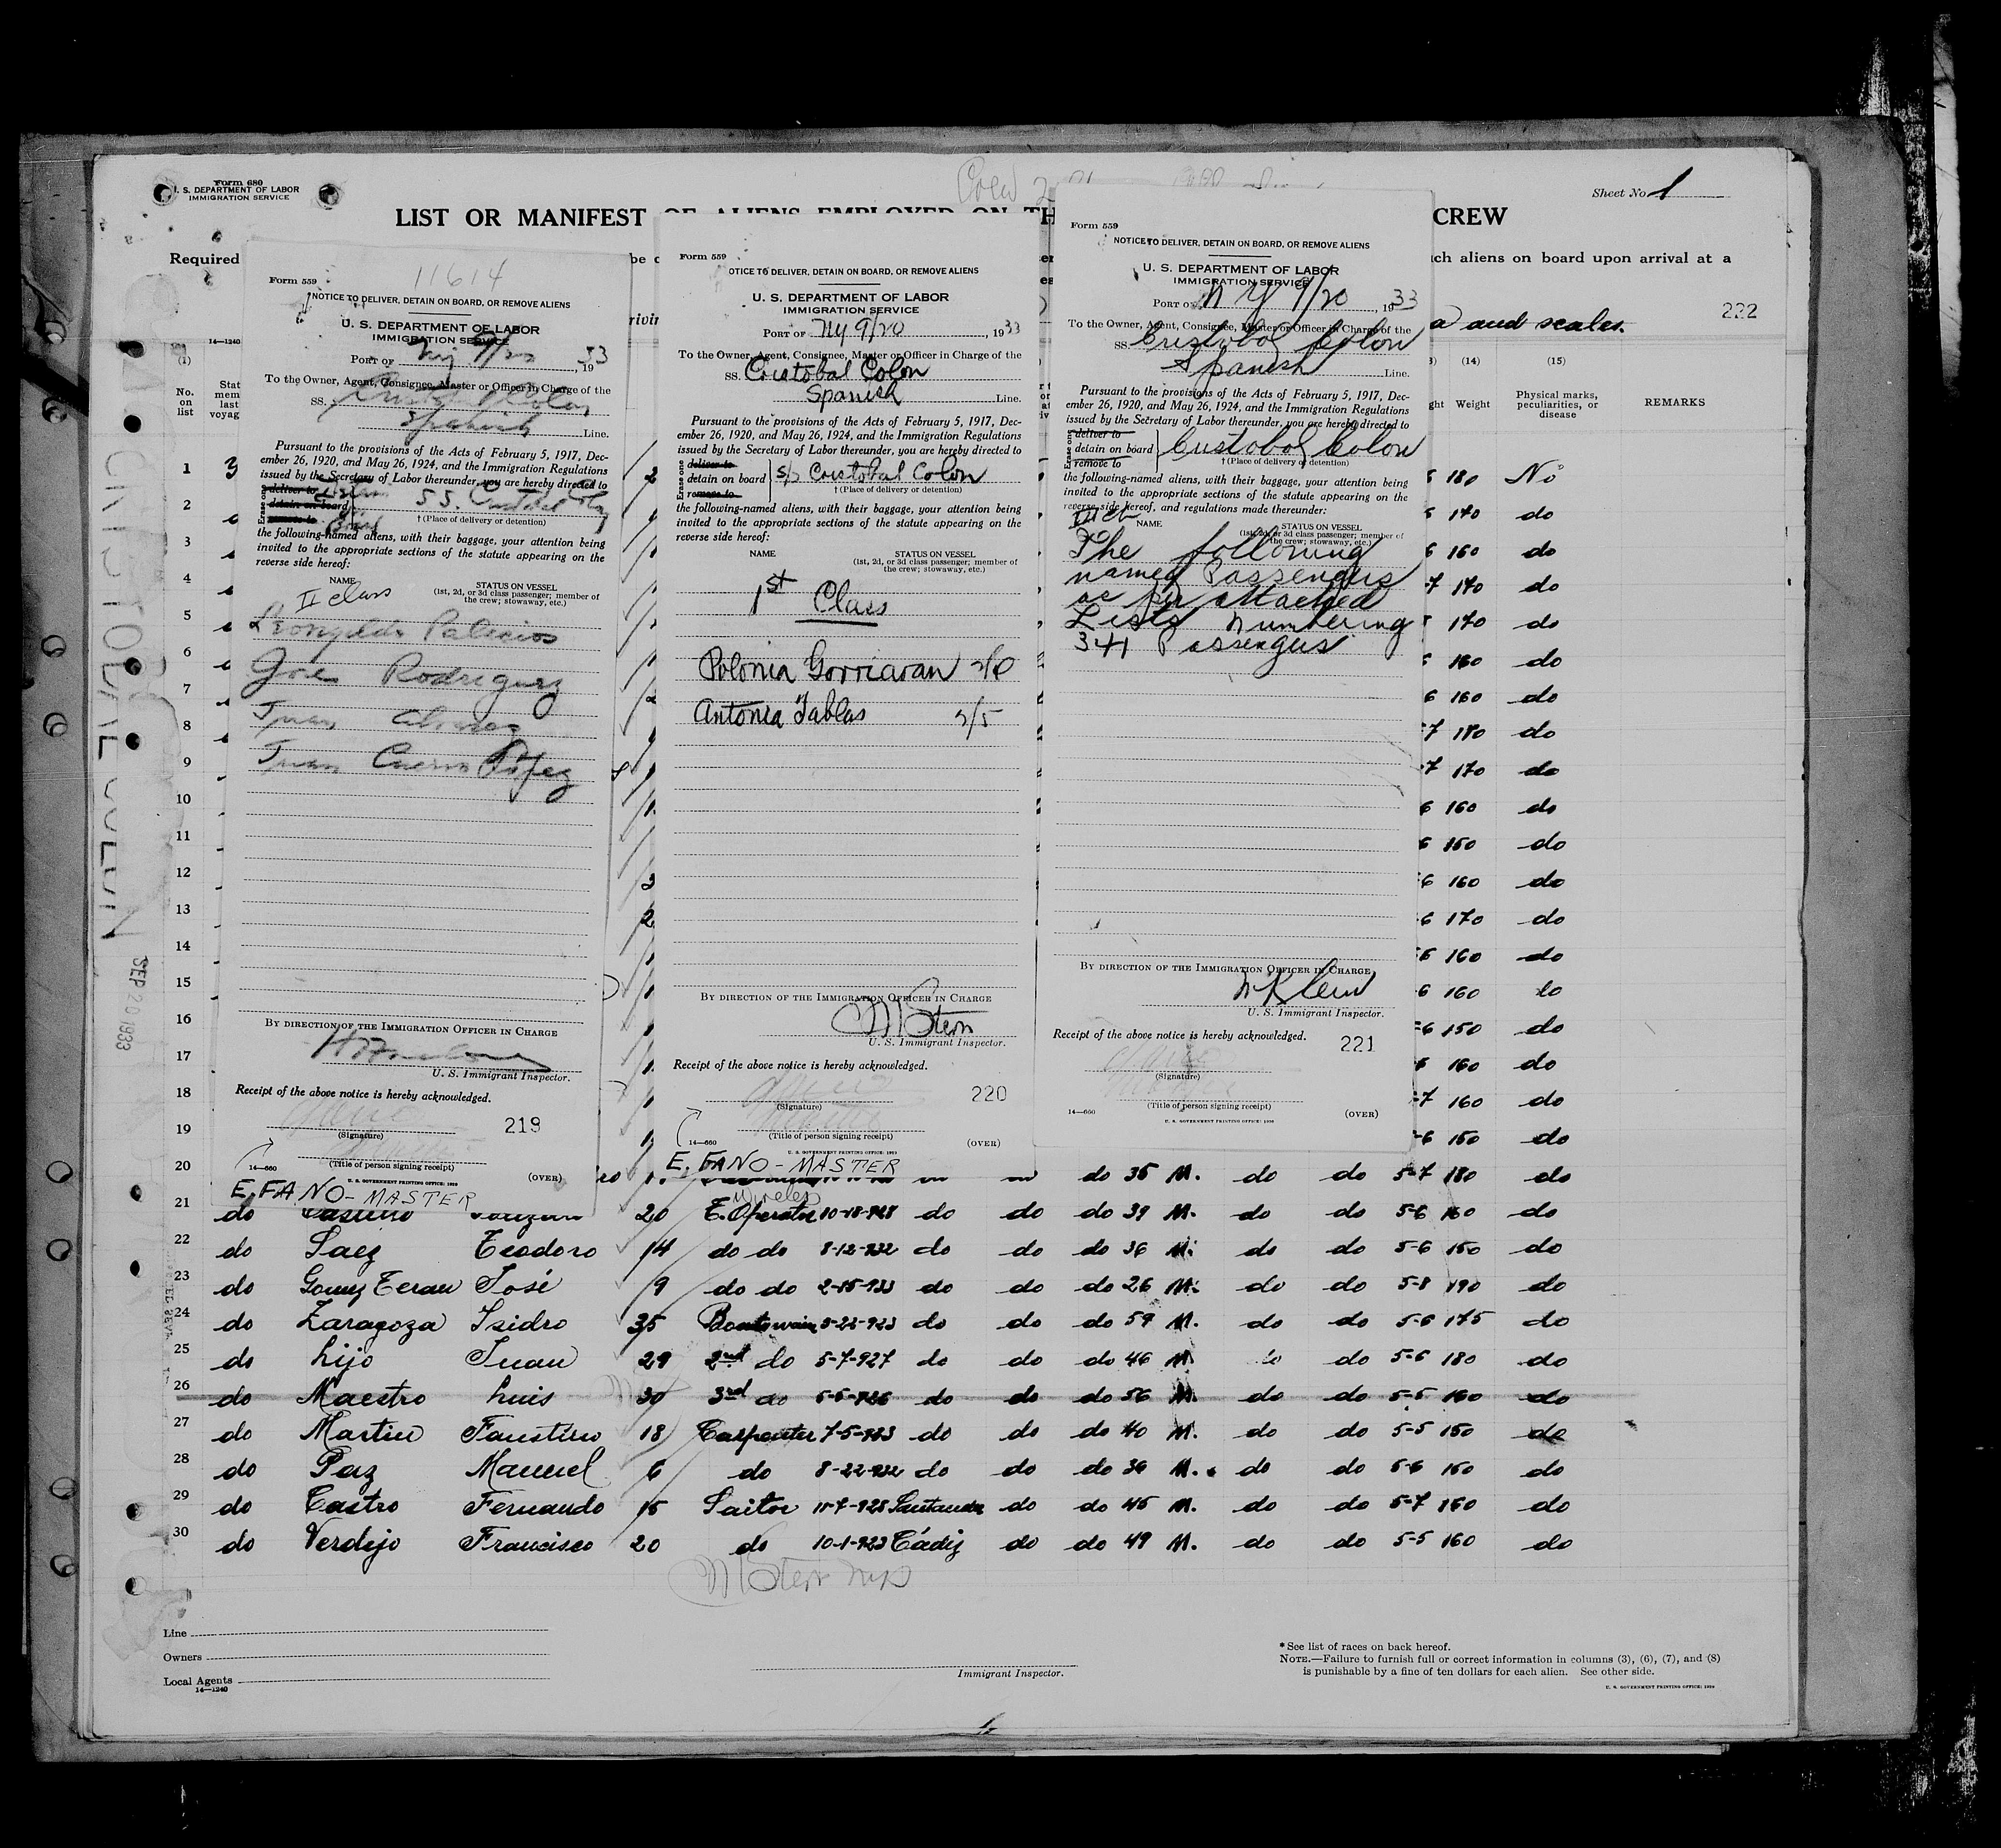 Form 680
U. S. DEPARTMENT OF LABOR
IMMIGRATION SERVICE
Sheet No 1
LIST OR MANIFEST OF ALIENS EMPLOYED ON TH
CREW
Required
ch aliens on board upon arrival at a
a and scales.
222
14—1240
(1)
(14)
(15)
No. on list
Stat
mem
last
voyag
ght
Weight
Physical marks, peculiarities, or disease
REMARKS
CRISTOBAL COLON
SEP 20 1933
Form 559
11614
NOTICE TO DELIVER, DETAIN ON BOARD, OR REMOVE ALIENS
U. S. DEPARTMENT OF LABOR
IMMIGRATION SERVICE
PORT OF NY 9/20, 1933
To the Owner, Agent, Consignee, Master or Officer in Charge of the
SS. Cristobal Colon
Spanish Line.
Pursuant to the provisions of the Acts of February 5, 1917, Dec-
ember 26, 1920, and May 26, 1924, and the Immigration Regulations
issued by the Secretary of Labor thereunder, you are hereby directed to
Erase one
deliver to
detain on board
remove to
S.S. Cristobal
† (Place of delivery or detention)
the following-named aliens, with their baggage, your attention being
invited to the appropriate sections of the statute appearing on the
reverse side hereof:
NAME
STATUS ON VESSEL
(1st, 2d, or 3d class passenger; member of
the crew; stowaway, etc.)
II class
Palacios
Jose Rodriguez
Juan
Juan Cuervo Lopez
BY DIRECTION OF THE IMMIGRATION OFFICER IN CHARGE
U. S. Immigrant Inspector.
Receipt of the above notice is hereby acknowledged.
219
(Signature)
14—660
(Title of person signing receipt)
(OVER)
U. S. GOVERNMENT PRINTING OFFICE: 1929
E. FANO - MASTER
Form 559
OTICE TO DELIVER, DETAIN ON BOARD, OR REMOVE ALIENS
U. S. DEPARTMENT OF LABOR
IMMIGRATION SERVICE
PORT OF NY 9/20, 1933
To the Owner, Agent, Consignee, Master or Officer in Charge of the
SS. Cristobal Colon
Spanish Line.
Pursuant to the provisions of the Acts of February 5, 1917, Dec-
ember 26, 1920, and May 26, 1924, and the Immigration Regulations
issued by the Secretary of Labor thereunder, you are hereby directed to
Erase one
deliver to
detain on board
remove to
S/S Cristobal Colon
† (Place of delivery or detention)
the following-named aliens, with their baggage, your attention being
invited to the appropriate sections of the statute appearing on the
reverse side hereof:
NAME
STATUS ON VESSEL
(1st, 2d, or 3d class passenger; member of
the crew; stowaway, etc.)
1st Class
Polonia Gorriaran
Antonia Tablas 2/5
BY DIRECTION OF THE IMMIGRATION OFFICER IN CHARGE
M Stern
U. S. Immigrant Inspector.
Receipt of the above notice is hereby acknowledged.
220
(Signature)
14—660
(Title of person signing receipt)
(OVER)
U. S. GOVERNMENT PRINTING OFFICE: 1929
E. FANO - MASTER
Form 559
NOTICE TO DELIVER, DETAIN ON BOARD, OR REMOVE ALIENS
U. S. DEPARTMENT OF LABOR
IMMIGRATION SERVICE
PORT OF N Y 9/20, 1933
To the Owner, Agent, Consignee, Master or Officer in Charge of the
SS. Cristobal Colon
Spanish Line.
Pursuant to the provisions of the Acts of February 5, 1917, Dec-
ember 26, 1920, and May 26, 1924, and the Immigration Regulations
issued by the Secretary of Labor thereunder, you are hereby directed to
Erase one
deliver to
detain on board
remove to
Cristobal Colon
† (Place of delivery or detention)
the following-named aliens, with their baggage, your attention being
invited to the appropriate sections of the statute appearing on the
reverse side hereof, and regulations made thereunder:
NAME
STATUS ON VESSEL
(1st, 2d, or 3d class passenger; member of
the crew; stowaway, etc.)
The following
named Passengers
as per attached
Lists numbering
341 Passengers
BY DIRECTION OF THE IMMIGRATION OFFICER IN CHARGE
Klein
U. S. Immigrant Inspector.
Receipt of the above notice is hereby acknowledged.
221
(Signature)
14—660
(Title of person signing receipt)
(OVER)
U. S. GOVERNMENT PRINTING OFFICE: 1930
1 180 No
2 170 do
3 160 do
4 170 do
5 170 do
6 160 do
7 160 do
8 180 do
9 170 do
10 160 do
11 150 do
12 160 do
13 170 do
14 160 do
15 160 do
16 150 do
17 160 do
18 160 do
19 150 do
20 do 35 M. do do 5-7 180 do
21 do 20 Wireless E. Operator 10-18-928 do do do 39 M. do do 5-6 160 do
22 do Saez Teodoro 14 do do 8-12-932 do do do 36 M. do do 5-6 150 do
23 do Gomez Teran José 9 do do 2-15-933 do do do 26 M. do do 5-8 190 do
24 do Zaragoza Isidro 35 Boatswain 5-22-923 do do do 59 M. do do 5-6 175 do
25 do Lijo Juan 29 2nd do 5-7-927 do do do 46 M. do do 5-6 180 do
26 do Maestro Luis 30 3rd do 5-5-926 do do do 56 M. do do 5-5 160 do
27 do Martin Faustino 18 Carpenter 7-5-923 do do do 40 M. do do 5-5 150 do
28 do Paz Manuel 6 do 8-22-932 do do do 36 M. do do 5-6 150 do
29 do Castro Fernando 15 Sailor 11-7-925 Santander do do 45 M. do do 5-7 160 do
30 do Verdejo Francisco 20 do 10-1-923 Cádiz do do 49 M. do do 5-5 160 do
M Stern
Line
Owners
Local Agents
14—1240
Immigrant Inspector.
* See list of races on back hereof.
NOTE.—Failure to furnish full or correct information in columns (3), (6), (7), and (8)
is punishable by a fine of ten dollars for each alien. See other side.
U. S. GOVERNMENT PRINTING OFFICE: 1929